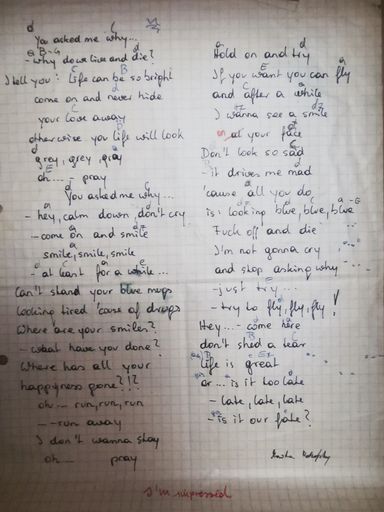 You asked me why...
- why do we live and die?
I tell you: Life can be so bright
come on and never hide
your love away
otherwise you life will look
grey, grey, gray
oh... - pray
You asked me why...
- hey, calm down, don't cry
- come on and smile
smile, smile, smile
- at least for a while...
Can't stand your blue mugs
looking tired 'cause of drugs
Where are your smiles?
- what have you done?
Where has all your
happyness gone?!?
oh... run, run, run
- run away
I don't wanna stay
oh... pray
Hold on and try
If you want you can fly
and after a while
I wanna see a smile
on at your face
Don't look so sad
- it drives me mad
'cause all you do
is: looking blue, blue, blue
Fuck off and die
I'm not gonna cry
and stop asking why
- just try...
- try to fly, fly, fly!
Hey... - come here
don't shed a tear
life is great
or... is it too late
- late, late, late
- is it our fate?
I'm impressed